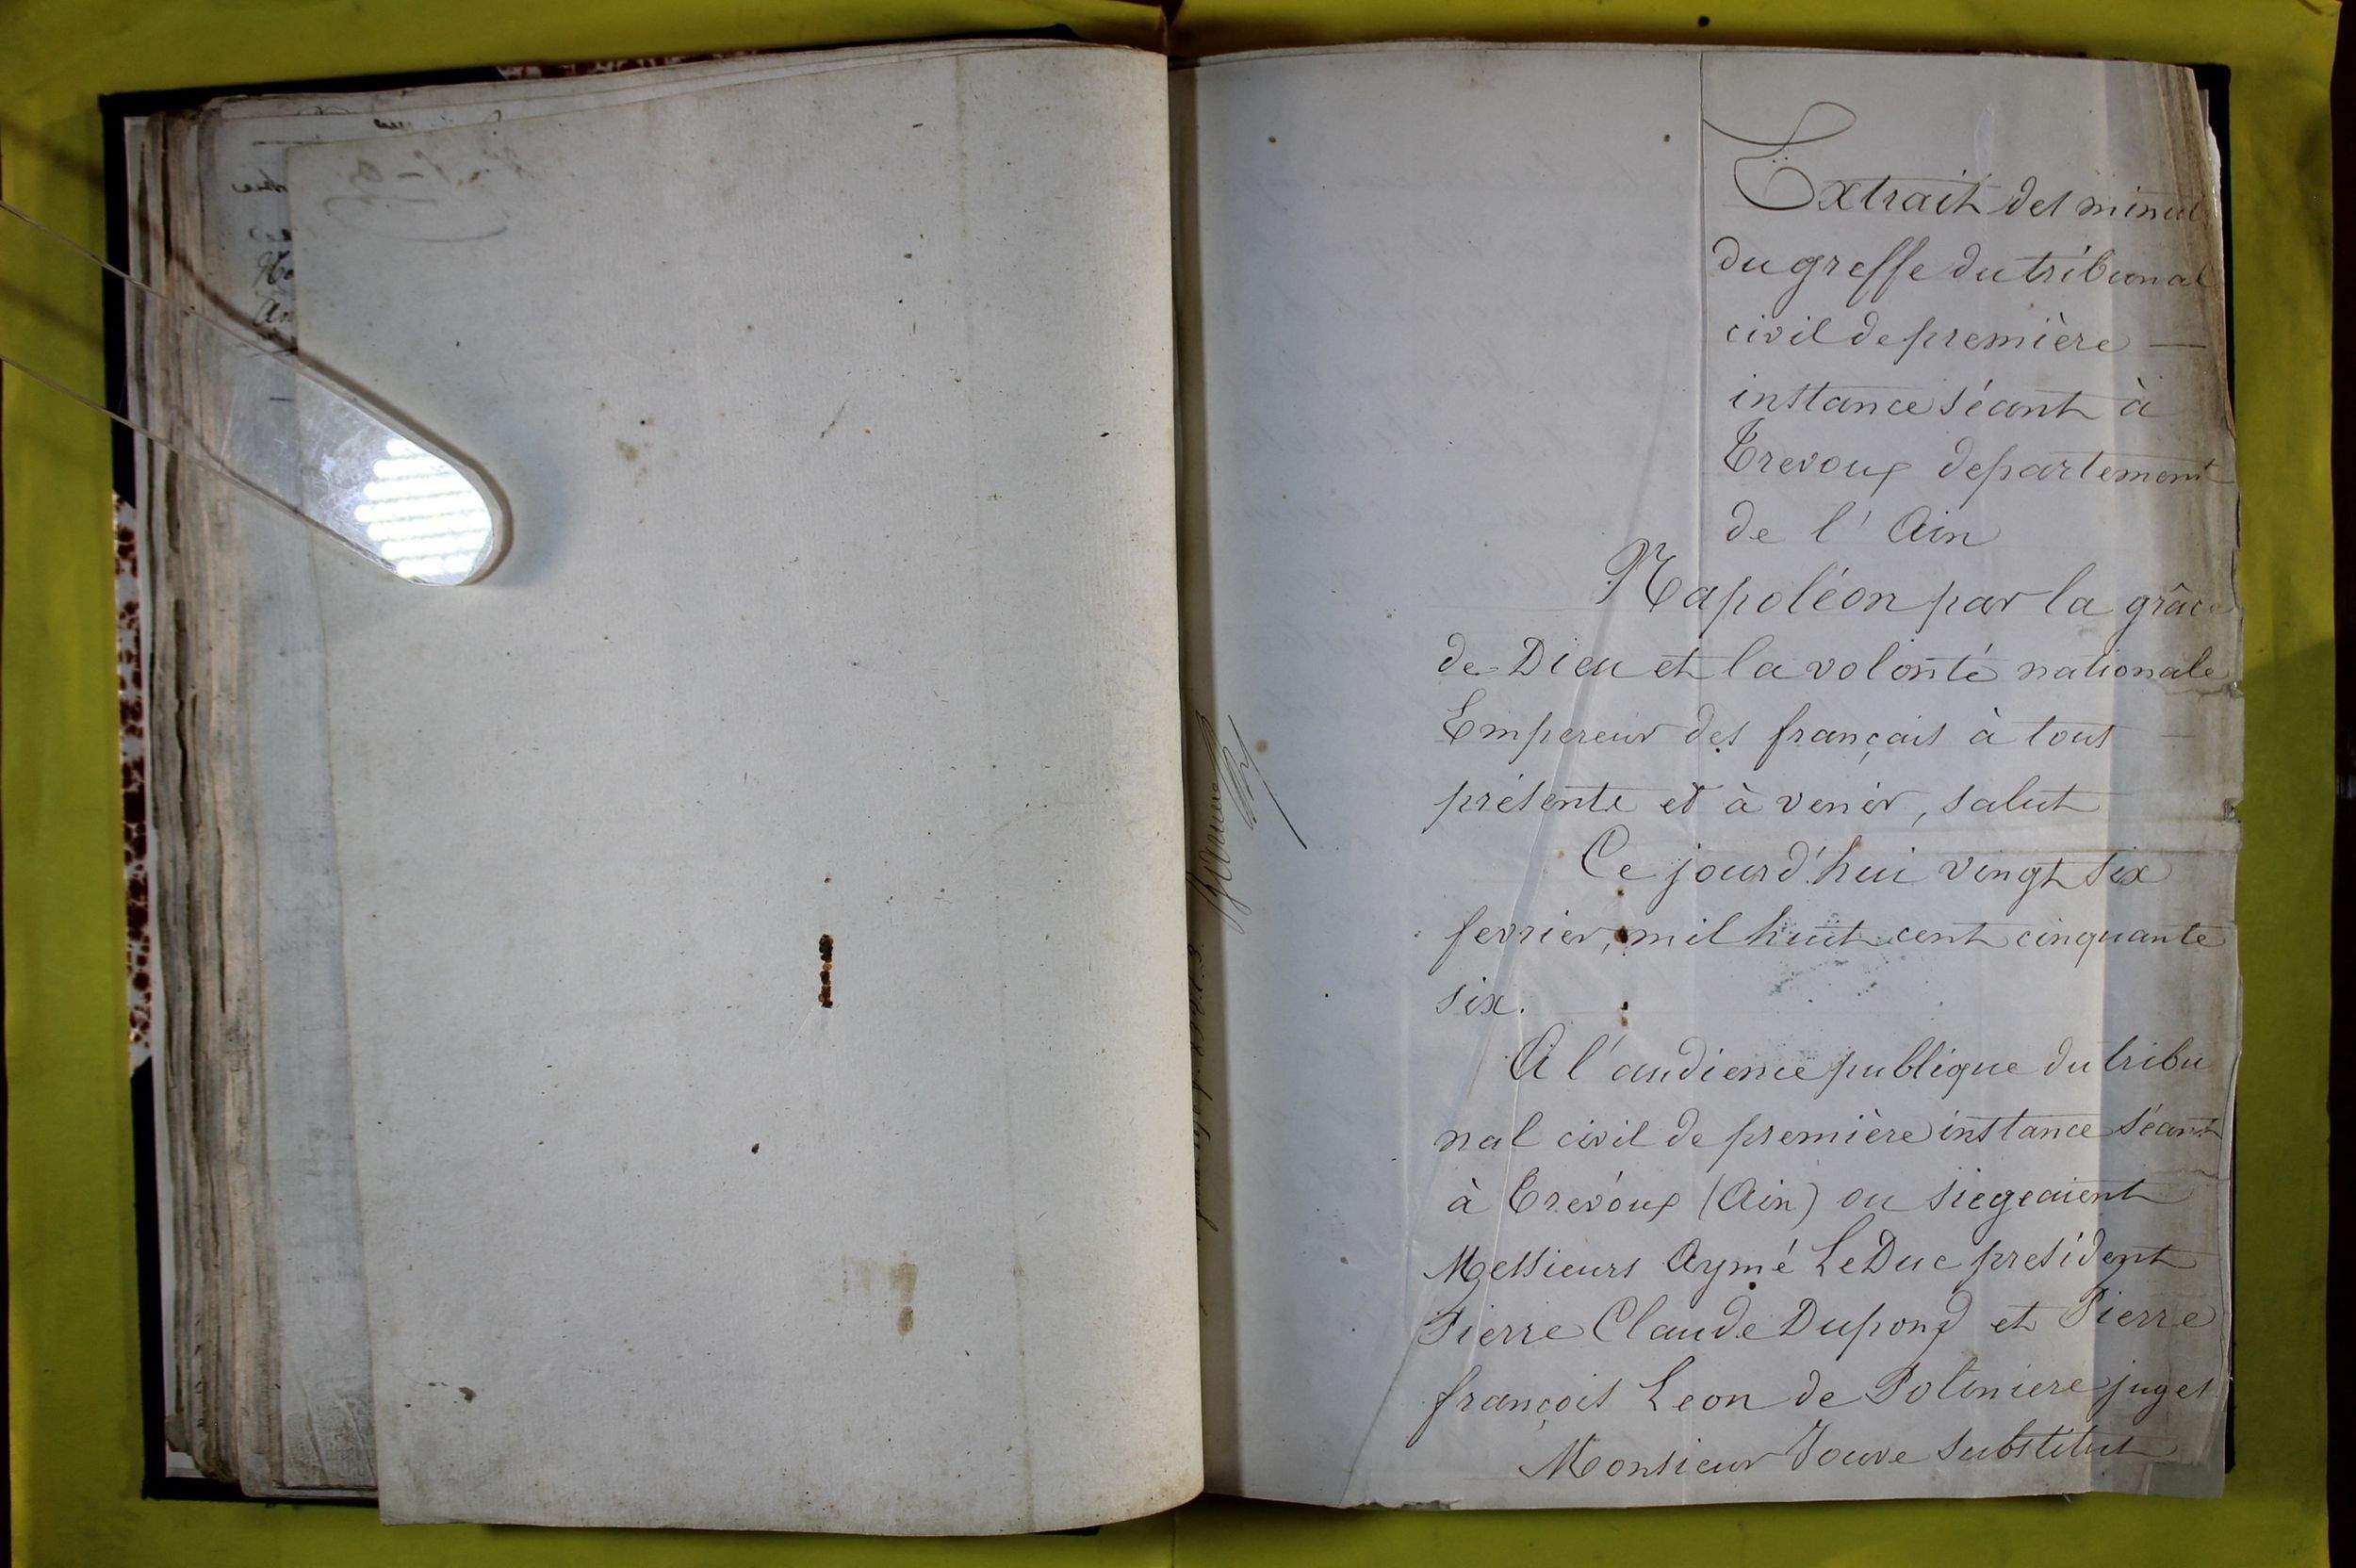 Extrait des minut
du greffe du tribunal
civil de première —
instance séant à
Trevoux departement
de l'Ain
Napoléon par la grâce
de Dieu et la volonté nationale
Empereur des français à tous
présents et à venir, salut
Ce jourd'hui vingt six
fevrier, mil huit cent cinquante
six.
A l'audience publique du tribu
nal civil de première instance séant
à Trevoux (Ain) ou siegeaient
Messieurs Aymé LeDuc president
Pierre Claude Dupond et Pierre
françois Leon de Poliniere juges
Monsieur Jouve substitut